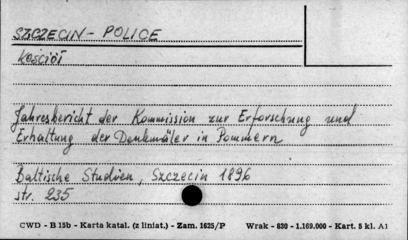 SZCZECIN - POLICE
Kościół
Jahresbericht der Kommission zur Erforschung und
Erhaltung der Denkmäler in Pommern
Baltische Studien, Szczecin 1896
str. 235
CWD - B 15b - Karta katal. (z liniat.) - Zam. 1625/P Wrak - 830 - 1.169.000 - Kart. 5 kl. A1